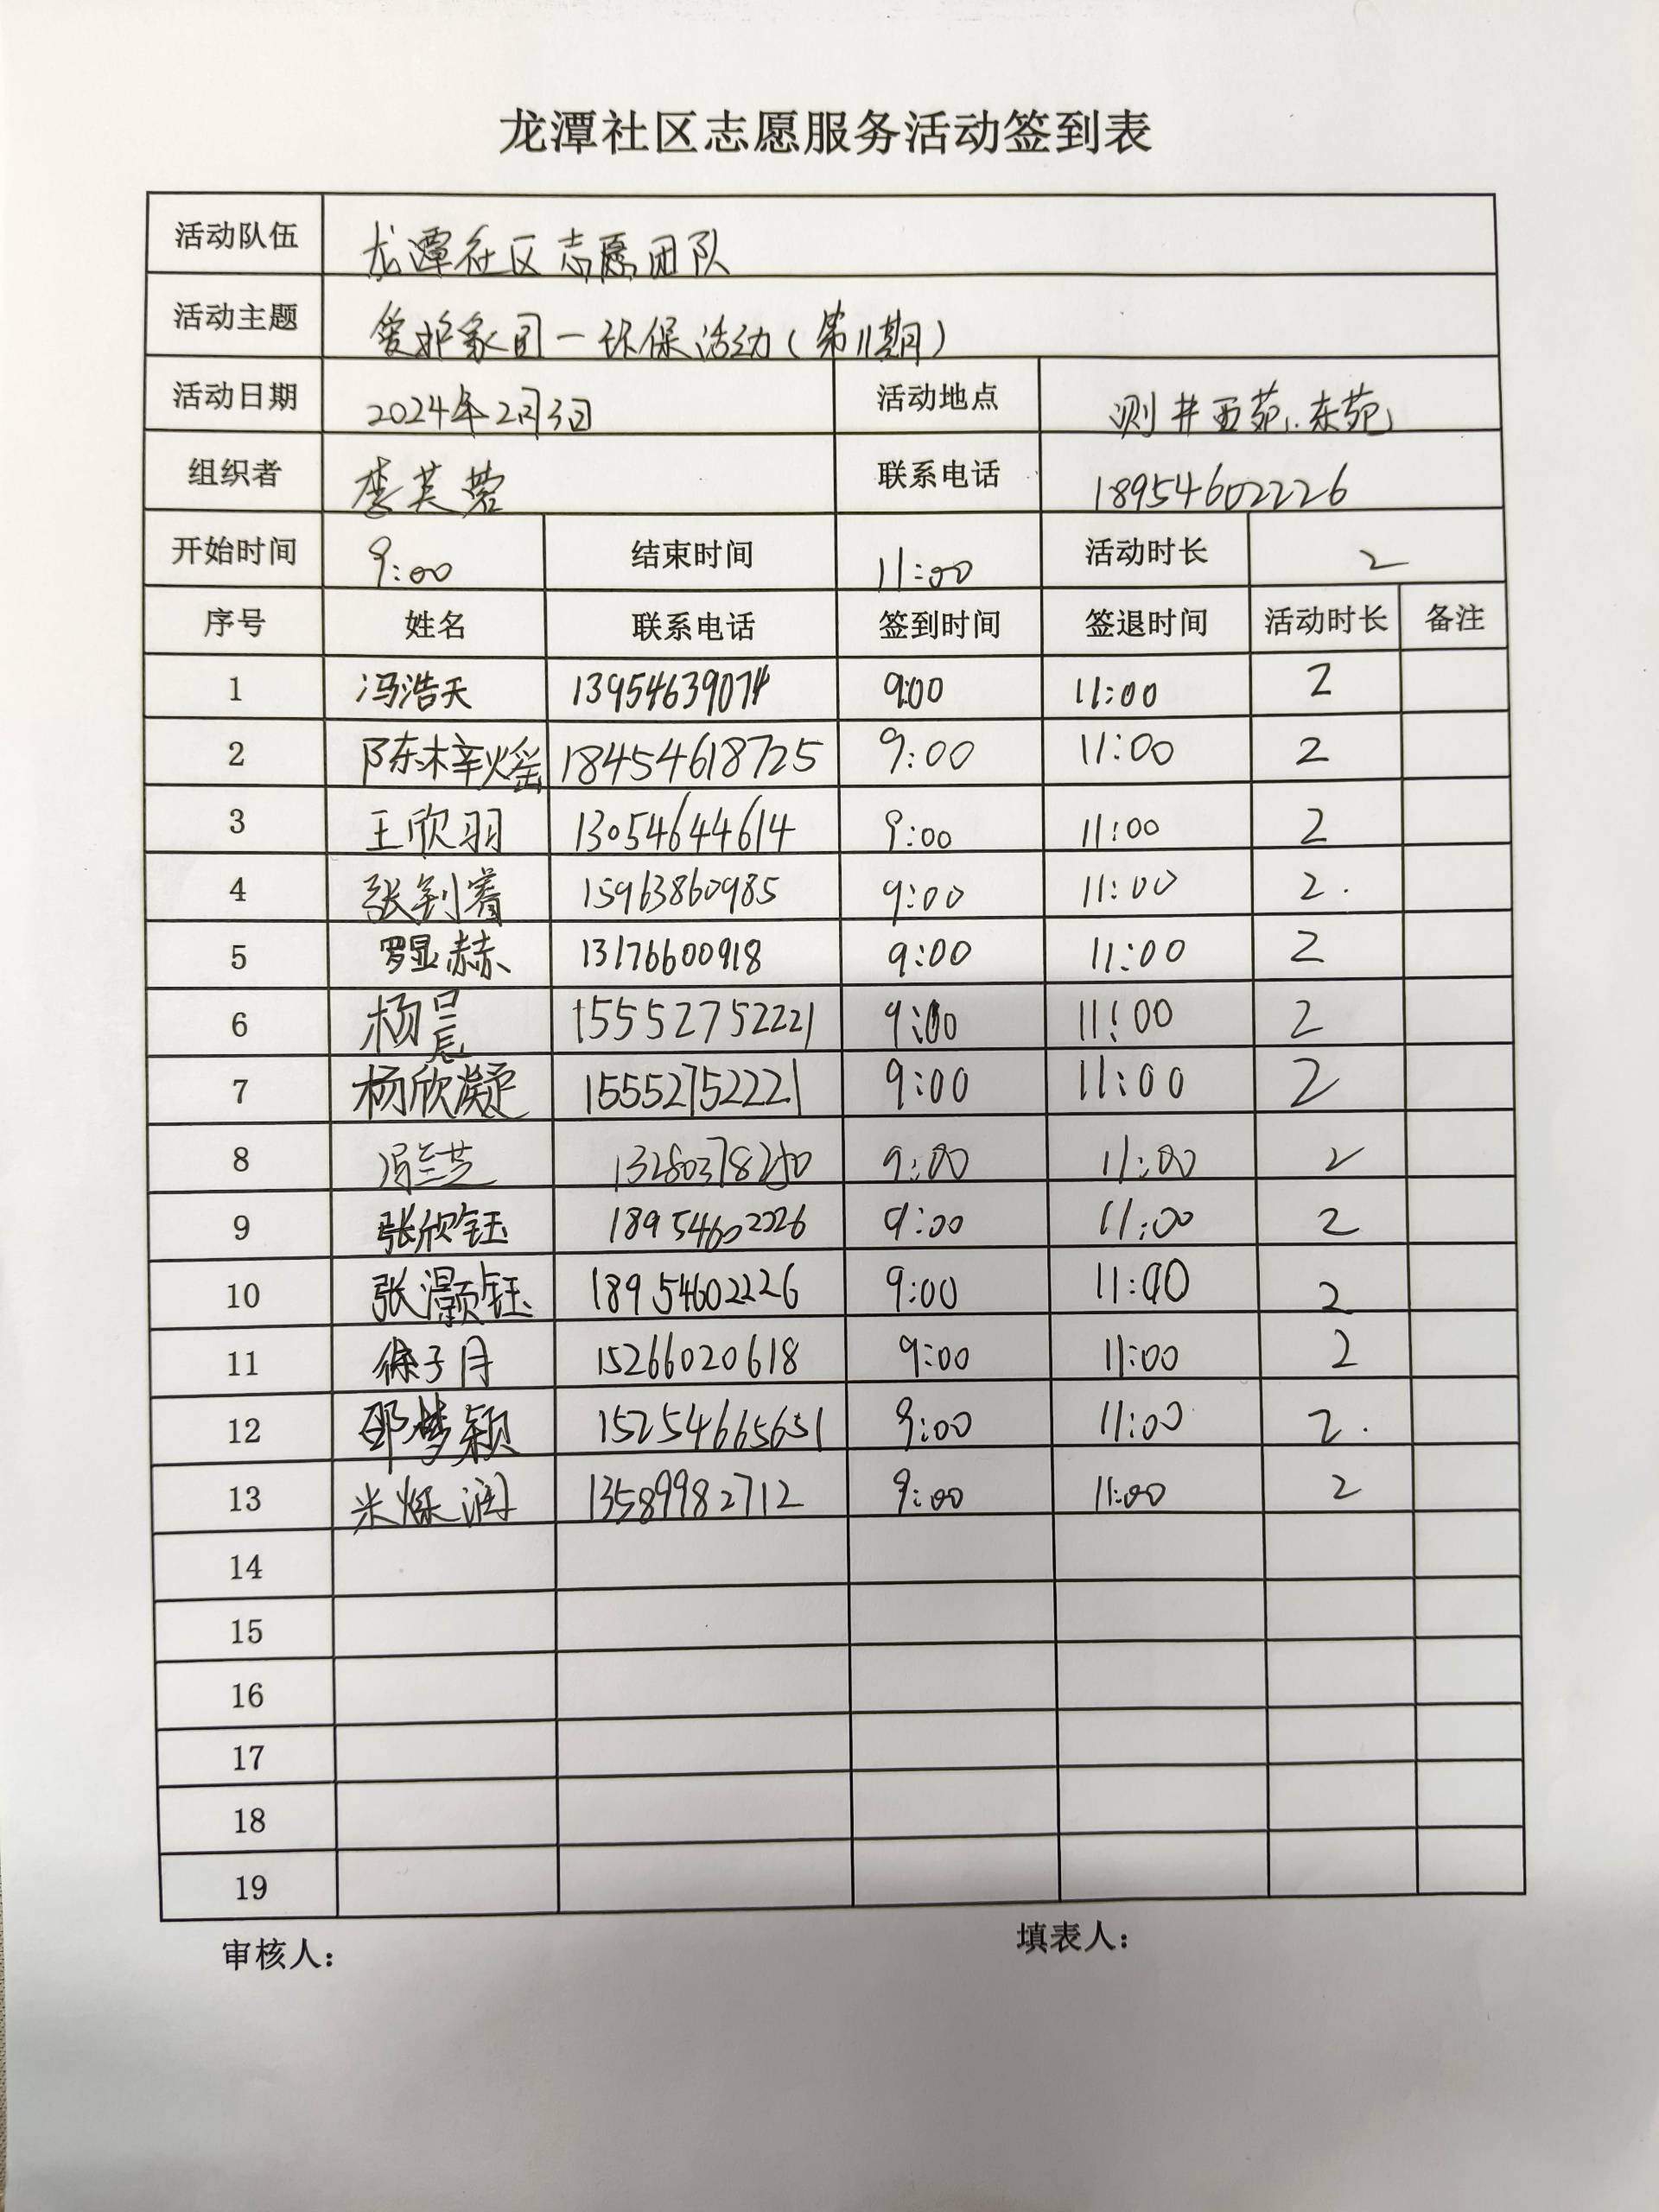 龙潭社区志愿服务活动签到表
活动队伍 龙潭社区志愿团队
活动主题 爱护家园一环保活动(第11期)
活动日期 2024年2月3日 活动地点 测井西苑、东苑
组织者 李芙蓉 联系电话 18954602226
开始时间 9:00 结束时间 11:00 活动时长 2
序号 姓名 联系电话 签到时间 签退时间 活动时长 备注
1 冯浩天 13954639074 9:00 11:00 2
2 陈梓熠 18454618725 9:00 11:00 2
3 王欣羽 13054644614 9:00 11:00 2
4 张钊睿 15963860985 9:00 11:00 2.
5 罗显赫 13176600918 9:00 11:00 2
6 杨昊 15552752221 9:00 11:00 2
7 杨欣凝 15552752221 9:00 11:00 2
8 冯兰芝 9:00 11:00 2
9 张欣钰 18954602226 9:00 11:00 2
10 张灏钰 18954602226 9:00 11:00 2
11 徐子月 15266020618 9:00 11:00 2
12 邵梦颖 15254665651 9:00 11:00 2.
13 米烁润 13589982712 9:00 11:00 2
14
15
16
17
18
19
审核人: 填表人: